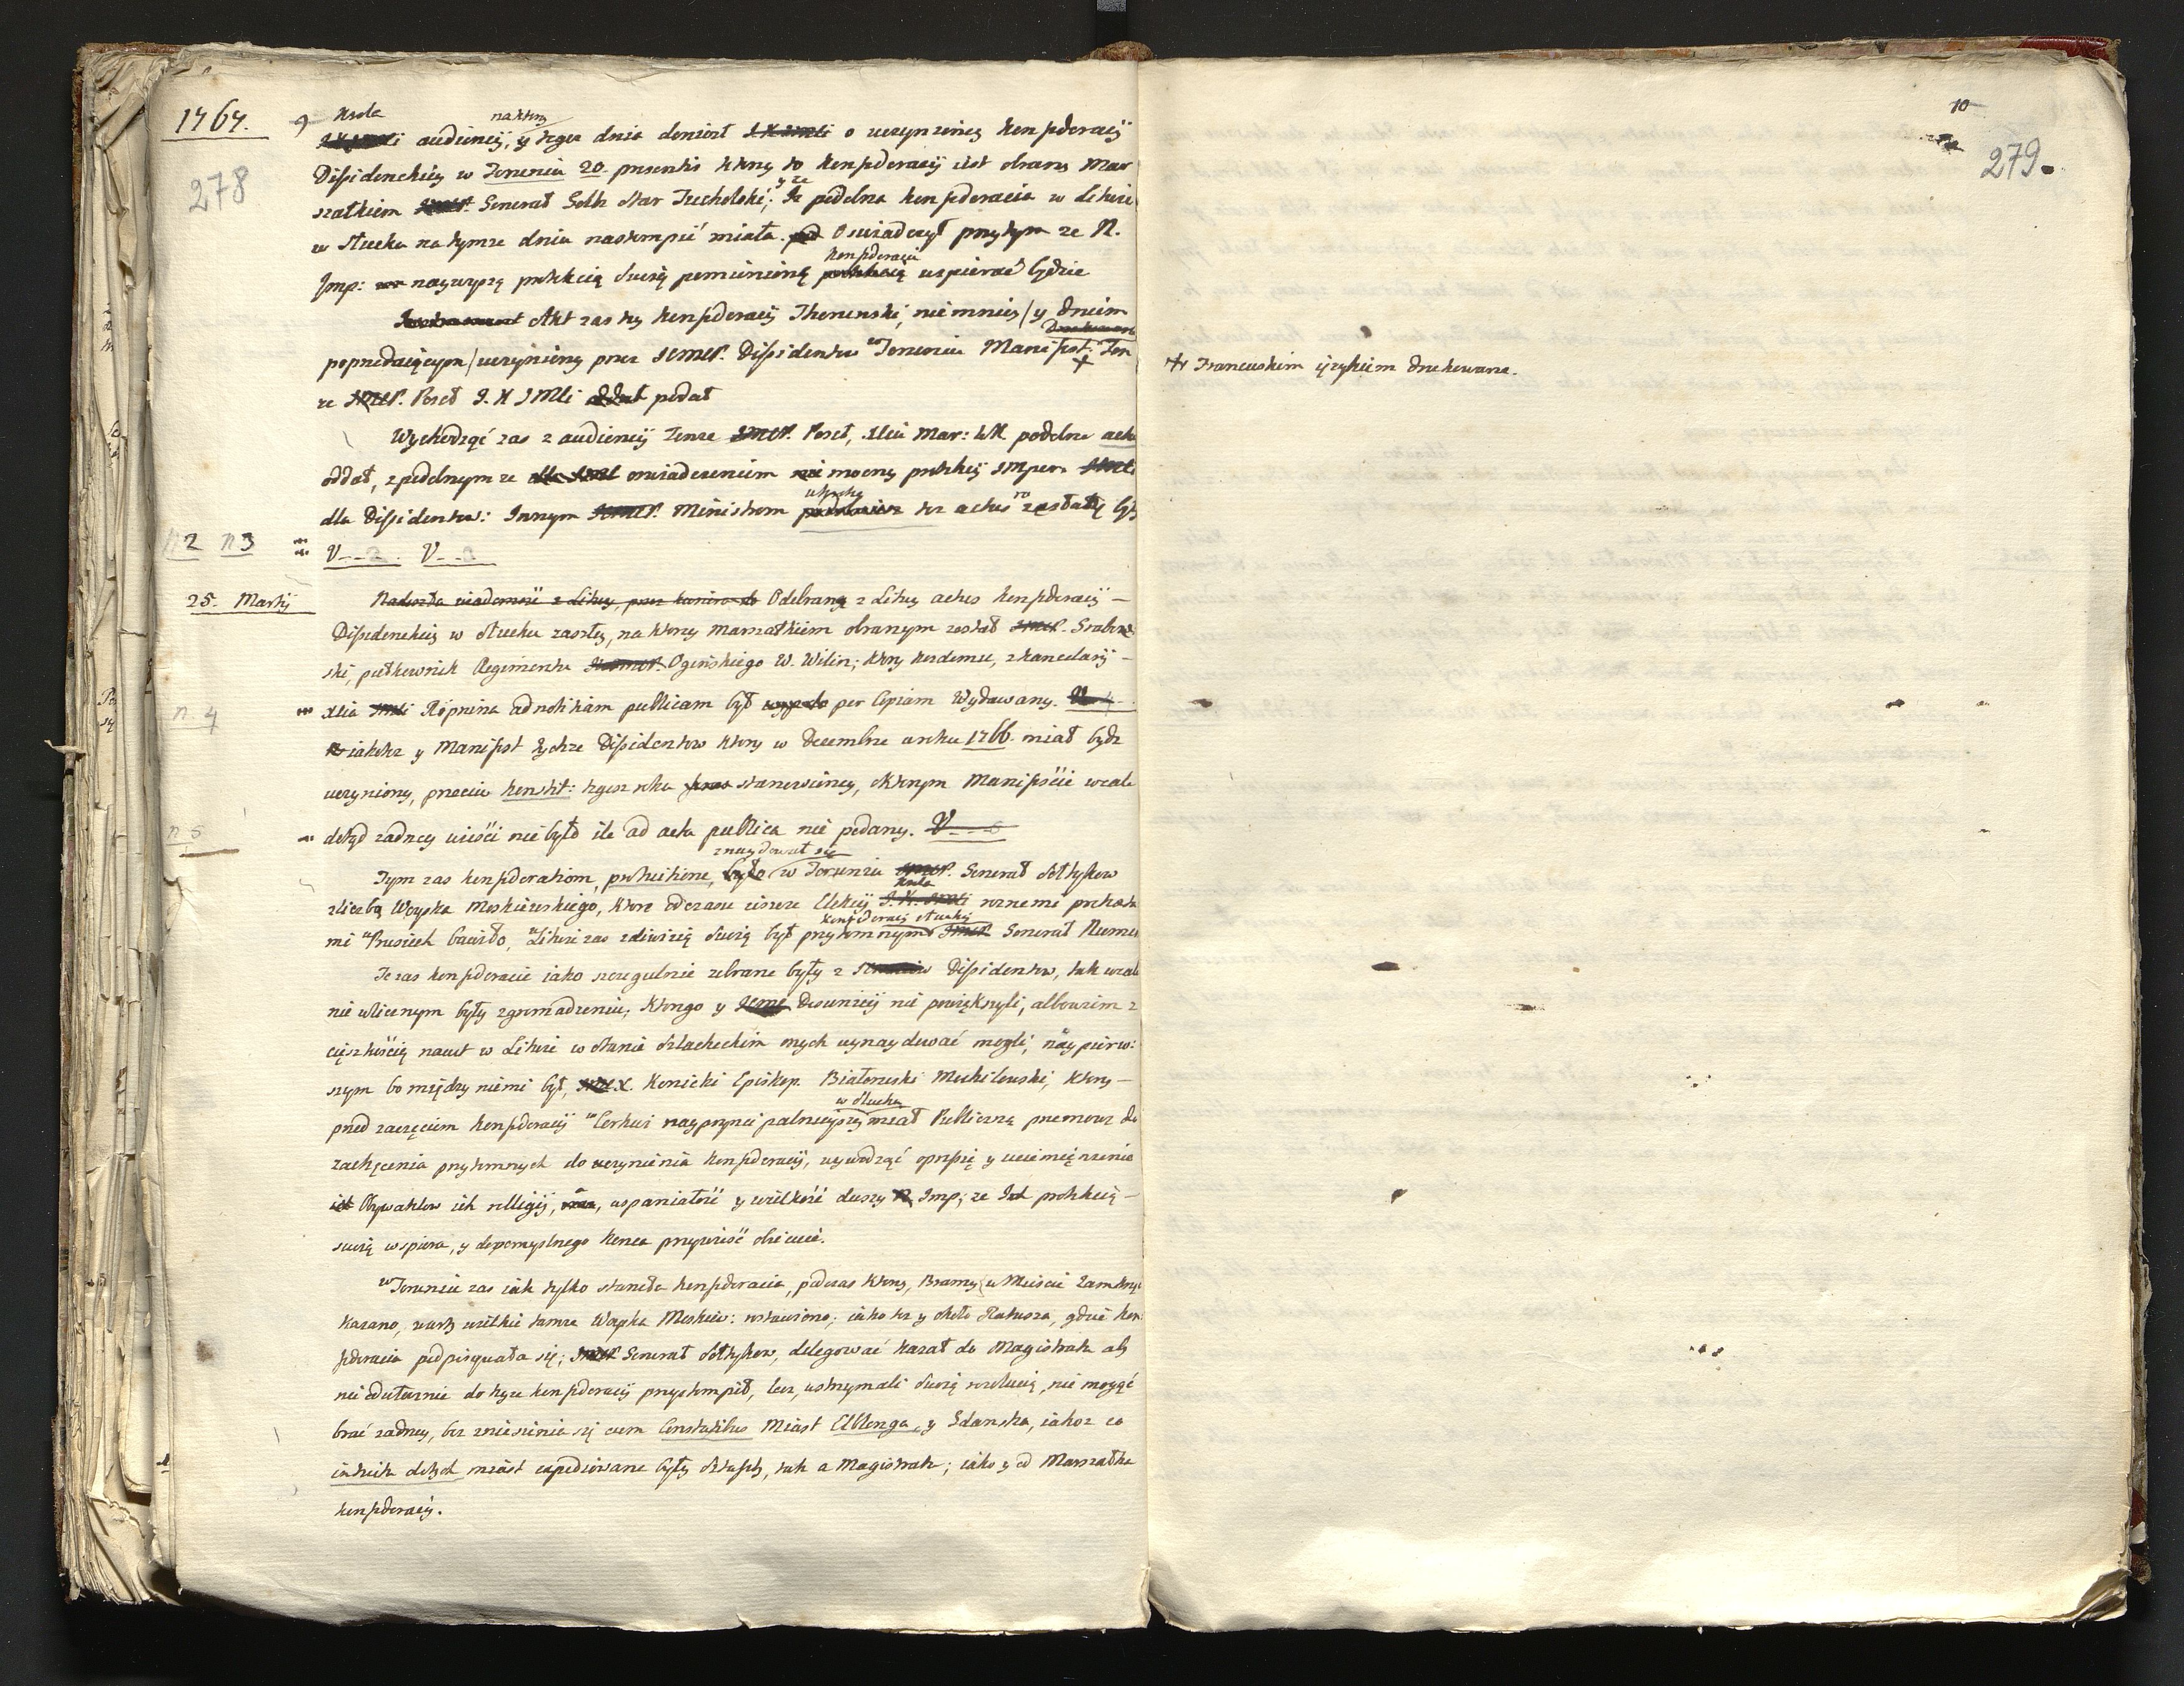 1767.
278
Krola
na ktorey
audiencij, y tegoz dnia doniosł o uczynioney konfederacij
Dissidenckiey w Toruniu 20. praesentis ktorey to konfederacij iest obrany Mar
szałkiem Generał Goltz Star Tucholski; y ze podobna konfederacia w Litwie
w Słucku na tymze dniu nastompić miała. Oswiadczył przytym ze N.
konfederacią
Imp: naywyszą protekcią swoią pomienioną wspierać będzie
Akt zas tey konfederacij Thorunski, niemniey / y dniem
poprzedaiącym / uczyniony przez Dissidentow w Toruniu Manifest. Ten
ze Poseł J. K JMCi podał
Wychodząć zas z audiencij Tenze Poseł, Xciu Mar: WK. podobne acta
oddał, z podobnym ze oswiadczeniem mocney protekcij Imper.
dla Dissidentow: Innym Ministrom též actus
n2 n3
V--2. V--3
25. Martij
Odebrany z Litwy actus konfederacij —
Dissidenckiey w Słucku zaszłey, na ktorey marszałkiem obranym został Grabow
ski, pułkownik Regimentu Oginskiego W. Wilen; ktory kozdemu, z kancelarij —
n 4
Xcia Repnina ad notitiam publicam był per Copiam Wydawany.
iakotez y Manifest tychze Dissidentow ktory w Decembrze anku 1766. miał bydz
uczyniony, przeciw konstit: tegoz roku stanowioney, o ktorym Manifeście wcale
n 5
dotąd zadney wieści nie było ile ad acta publica nie podany.
znaydował się
Tym zas konfederatiom, protectione, w Toruniu Generał Sołtykow
Krola
z liczbą Woyska Moskiewskiego, ktore od czasu ieszcze Elekcij roznemi pretexta
konfederacij słuckiey
mi w Prusiech bawiło, w Litwie zas z dywizią swoią był przytomnym Generał Numers
Te zas konfederacie iako szczegulnie zebrane były z Dissidentow, tak wcale
nie w licznym były zgromadzeniu, ktorego y Dwuniccij nie powiększyli, albowiem z
cięszkością nawet w Litwie w stanie szlacheckim onych wynaydować mogli, naypierw:
szym bo między niemi był, X. Konicki Episkop. Białoruski Mochilewski, ktory —
w Słucku
przed zaczęciem konfederacij w Cerkwi nayprzyncipalnieyszey miał Publiczną przemowę do
zachęcenia przytomnych do uczynienia konfederacij, wywodząć opressię y uciemięzenie
Obywatelow ich relligij, wspaniałość y wielkość duszy Imp; ze protekcią —
swoią wspiera, y do pomyslnego konca przywieść obiecuie.
w Toruniu zas iak tylko stanęła konfederacia, podczas ktorey, Bramy w Miescie zamknąć
kazano, warty wielkie tamze Woyska Moskiew: rostawiono; iako tez y około Ratusza, gdzie kon
federacia podpisywała się; Generał Sołtykow, delegować kazał do Magistratu aby
nieodwłocznie do teyze konfederacij przystompił, lecz wstrzymali swoią rezolucią, nie mogąć
brać zadney, bez zniesienia się cum Constatibus Miast Elblonga, y Gdanska, iakoz co
miast expediowane były sztafety, tak a Magistratu; iako y od Marszałka
konfederacij.
10
279.
+ Francuskim ięzykiem drukowane.